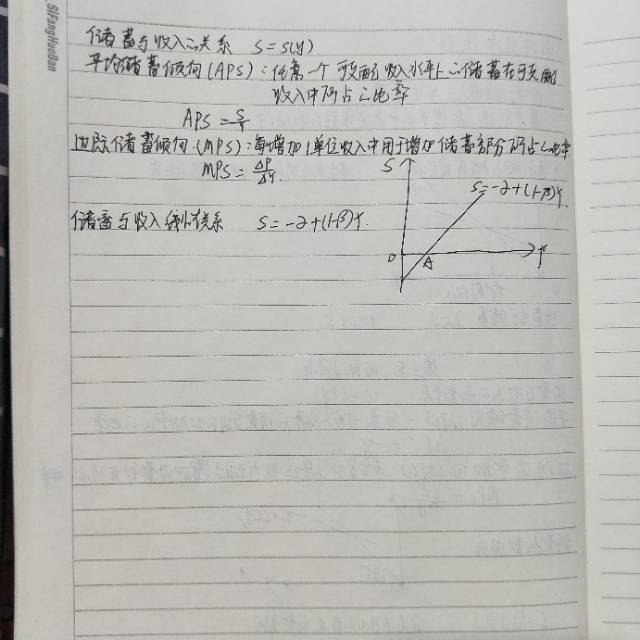 SiFangHuoBan
储蓄与收入の关系 S=S(y)
平均储蓄倾向(APS):任意一个可支配收入水平上の储蓄在可支配
收入中所占之比率
APS=S/Y
边际储蓄倾向(MPS):每增加1单位收入中用于增加储蓄部分所占之比率
MPS=ΔP/ΔY.
储蓄与收入线性关系 S=-2+(1-β)Y.
S
S=-2+(1-β)Y.
0
A
Y